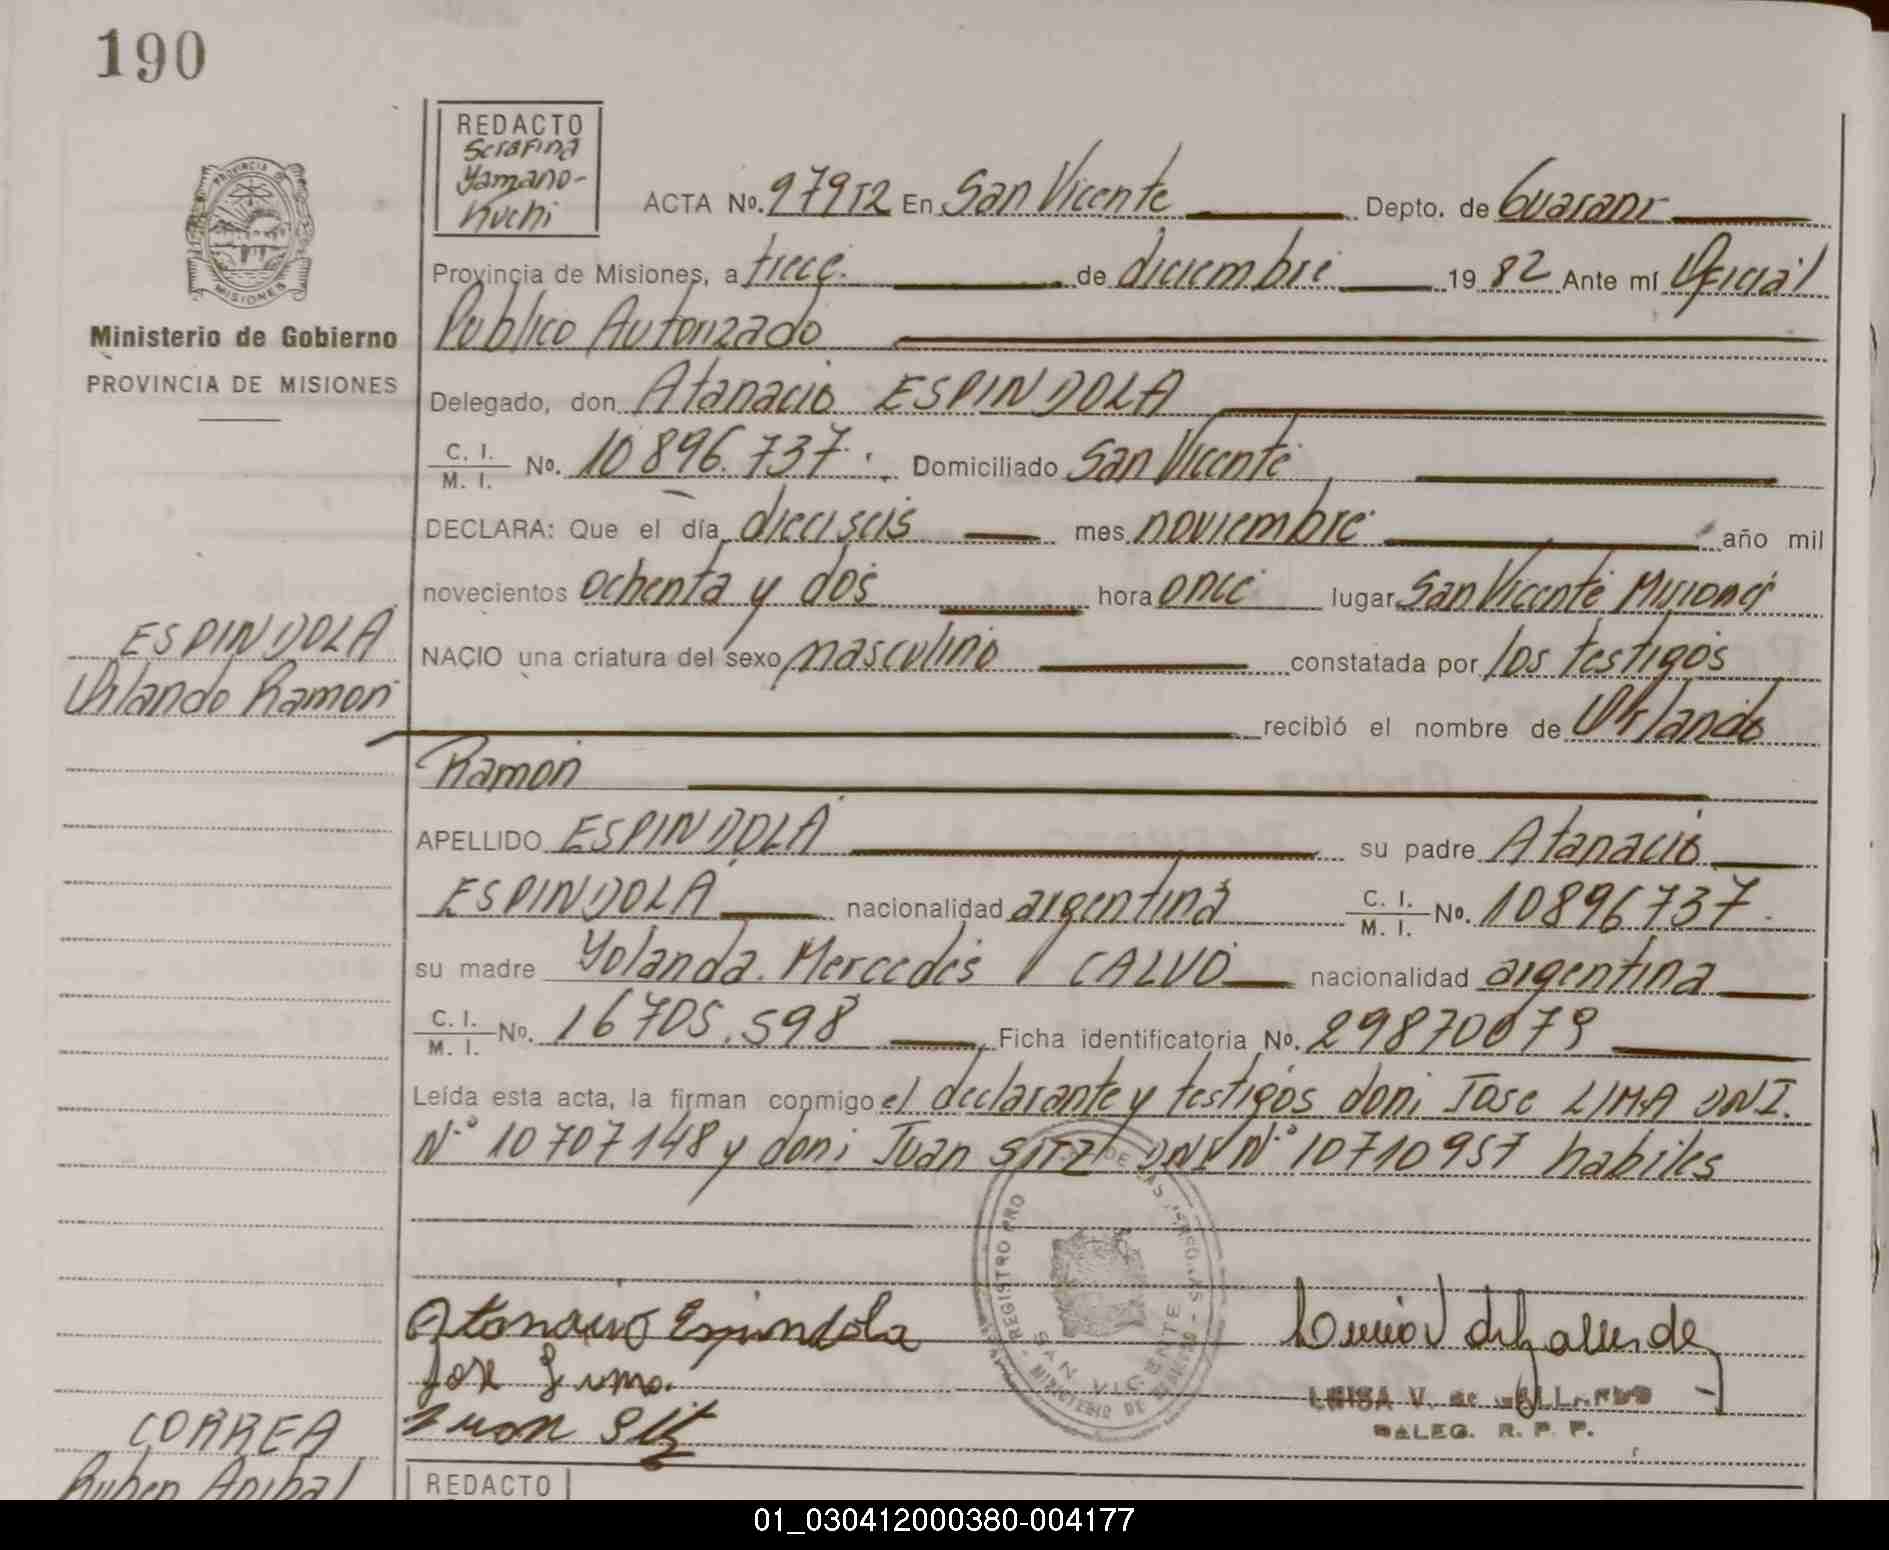 190
REDACTO
Serafina
Yamano-
Kuchi
PROVINCIA DE
MISIONES
Ministerio de Gobierno
PROVINCIA DE MISIONES
ACTA No. 97952 En San Vicente Depto. de Guarani
Provincia de Misiones, a trece de diciembre 1982 Ante mí Oficial
Publico Autorizado
Delegado, don Atanacio ESPINDOLA
C. I. / M. I. No. 10896.737. Domiciliado San Vicente
DECLARA: Que el día dieciseis mes noviembre año mil
novecientos ochenta y dos hora once lugar San Vicente Misiones
ESPINDOLA
Orlando Ramon
NACIO una criatura del sexo masculino constatada por los testigos
recibió el nombre de Orlando
Ramon
APELLIDO ESPINDOLA su padre Atanacio
ESPINDOLA nacionalidad argentina C. I. / M. I. No. 10896737.
su madre Yolanda Mercedes CALVO nacionalidad argentina
C. I. / M. I. No. 16705.598 Ficha identificatoria No. 29870079
Leída esta acta, la firman conmigo el declarante y testigos don: Jose LIMA DNI.
N° 10707148 y don: Juan SITZ DNI N° 10710957 habiles
REGISTRO PRO DE LAS PERSONAS
SAN VICENTE
MINISTERIO DE GOBIERNO
Atanacio Espindola
Jose Lima
Juan Sitz
LUISA V. de GALLARDO
DALEG. R. P. P.
CORREA
Ruben Anibal
REDACTO
01_030412000380-004177